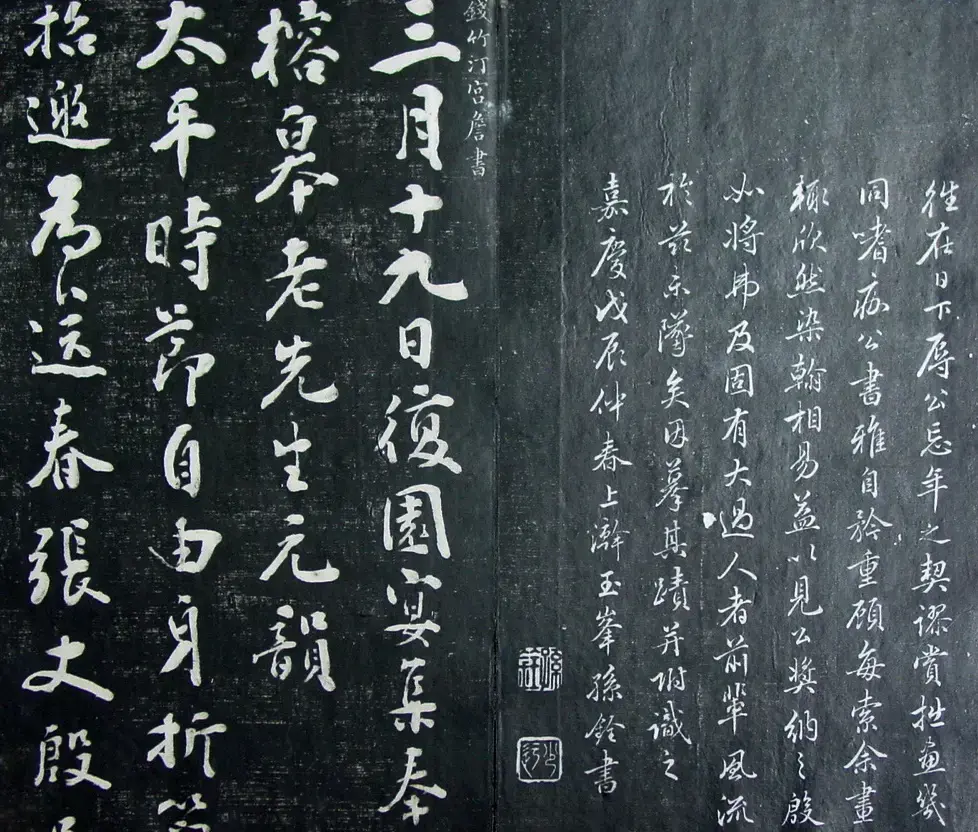 往在日下辱公忘年之契謬賞拙畫幾
同嗜痂公書雅自矜重顧每索余畫
輒欣然染翰相易益以見公獎納之殷
如將弗及固有大過人者前輩風流
於茲未墜矣因摹其蹟并附識之
嘉慶戊辰仲春上澣玉峯孫銓書
孫銓
少迂
錢竹汀宮詹書
三月十九日復園宴集奉
榕皋老先生元韻
太平時節自由身折
招邀為送春張丈殷